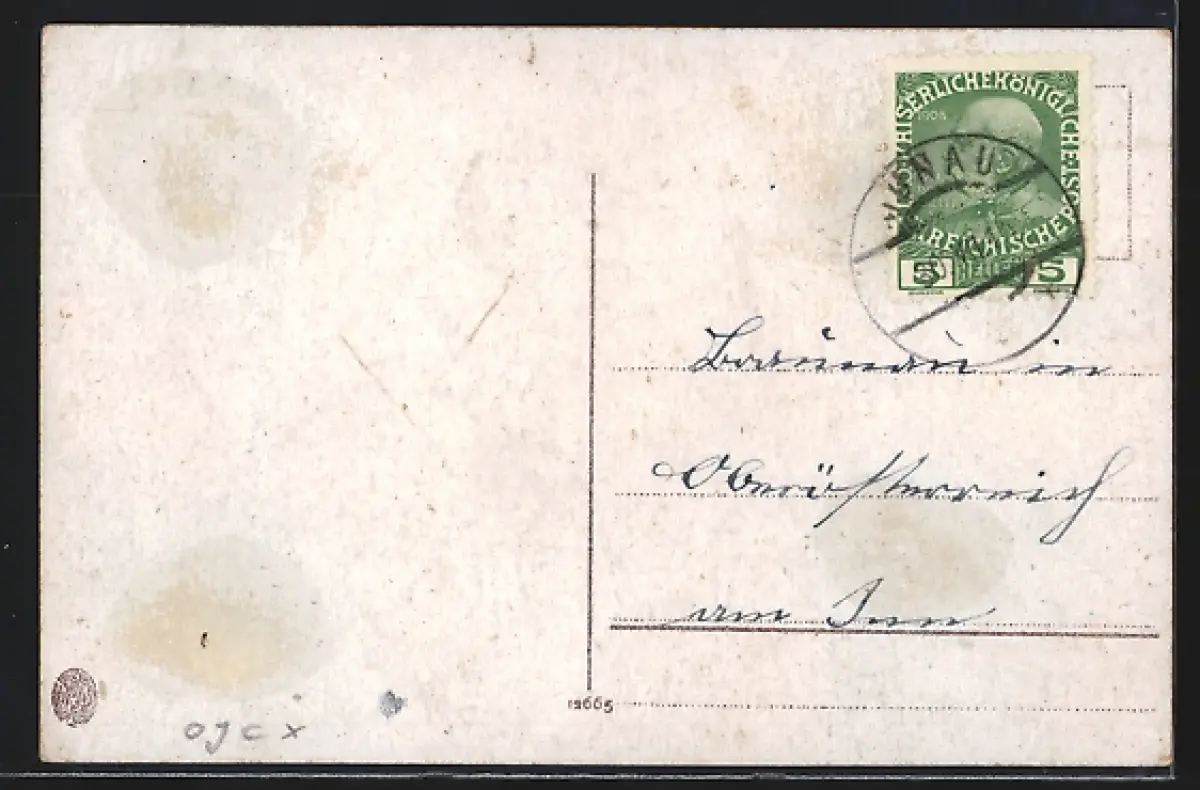 KAISERLICHEKÖNIGLICHE
1908
REICHISCHE
5 HELLER 5
Braunau in
Oberösterreich
am Inn
12665